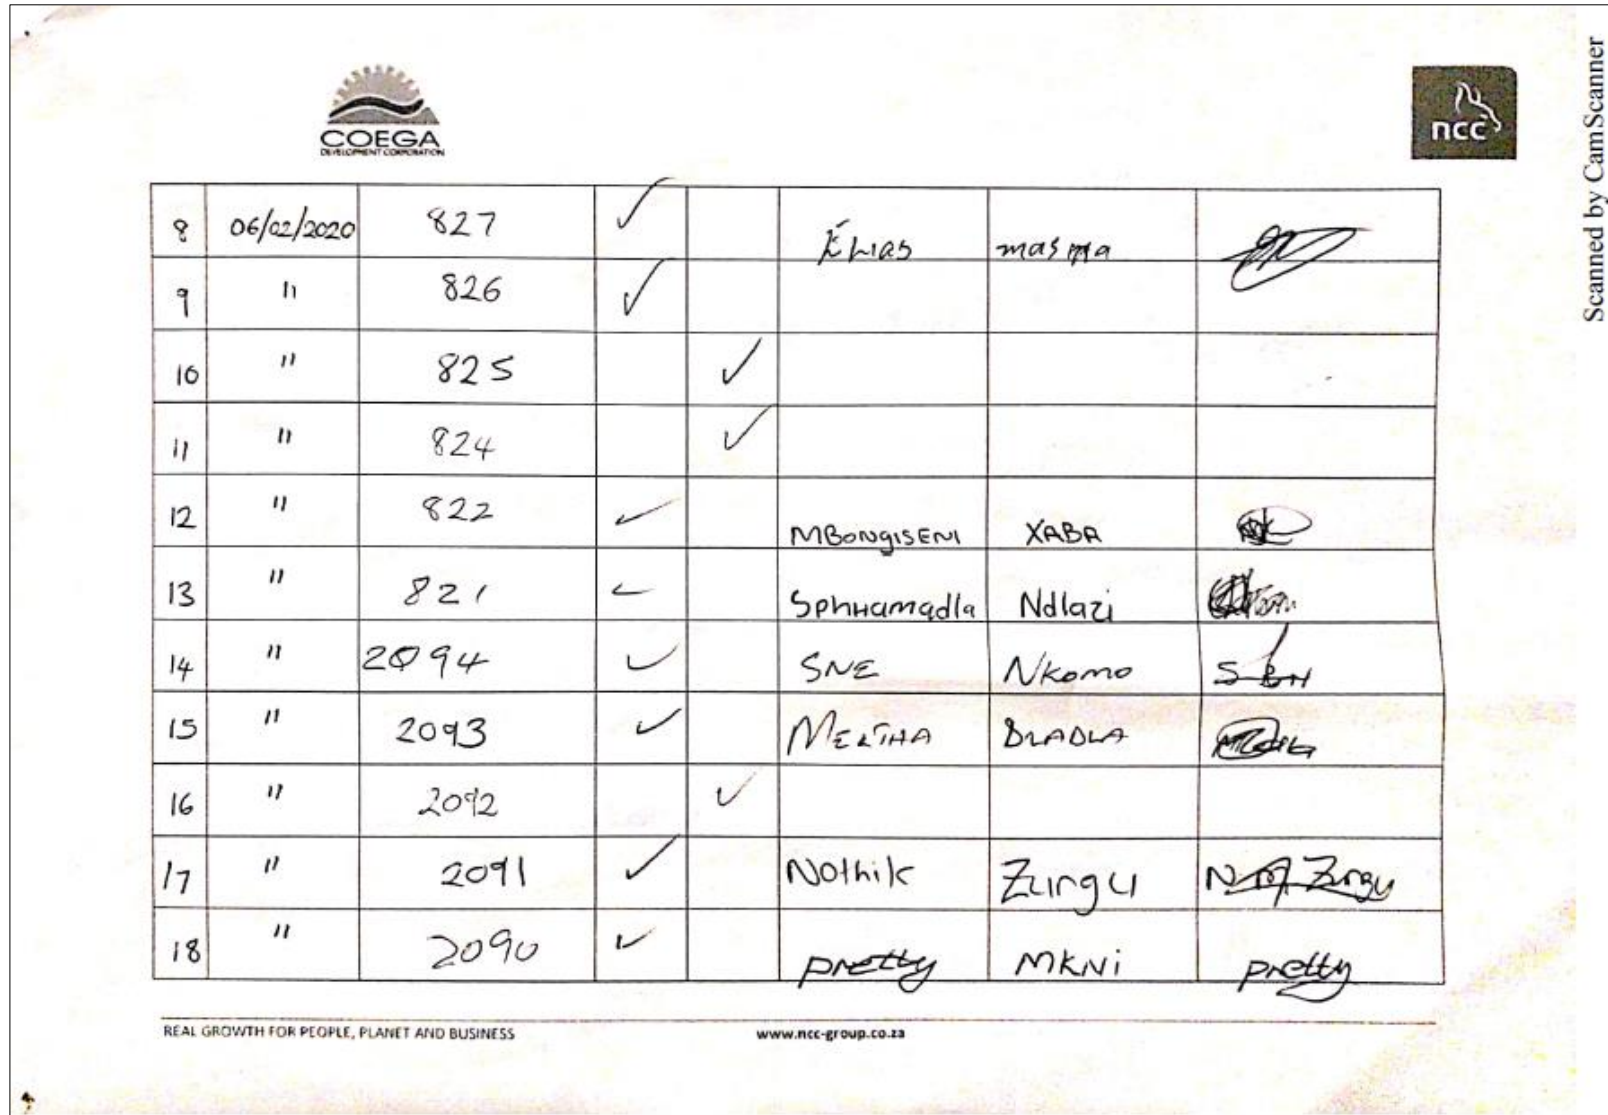 COEGA
DEVELOPMENT CORPORATION
ncc
Scanned by CamScanner
8 06/02/2020 827 ✓ Elias
9 " 826 ✓
10 " 825 ✓
11 " 824 ✓
12 " 822 ✓ MBongiseni XABA
13 " 821 ✓ Sphhamadla Ndlazi
14 " 2094 ✓ SNE Nkomo
15 " 2093 ✓ DLADLA
16 " 2092 ✓
17 " 2091 ✓ Nothik Zungu N Zungu
18 " 2090 ✓ pretty MKNi pretty
REAL GROWTH FOR PEOPLE, PLANET AND BUSINESS www.ncc-group.co.za